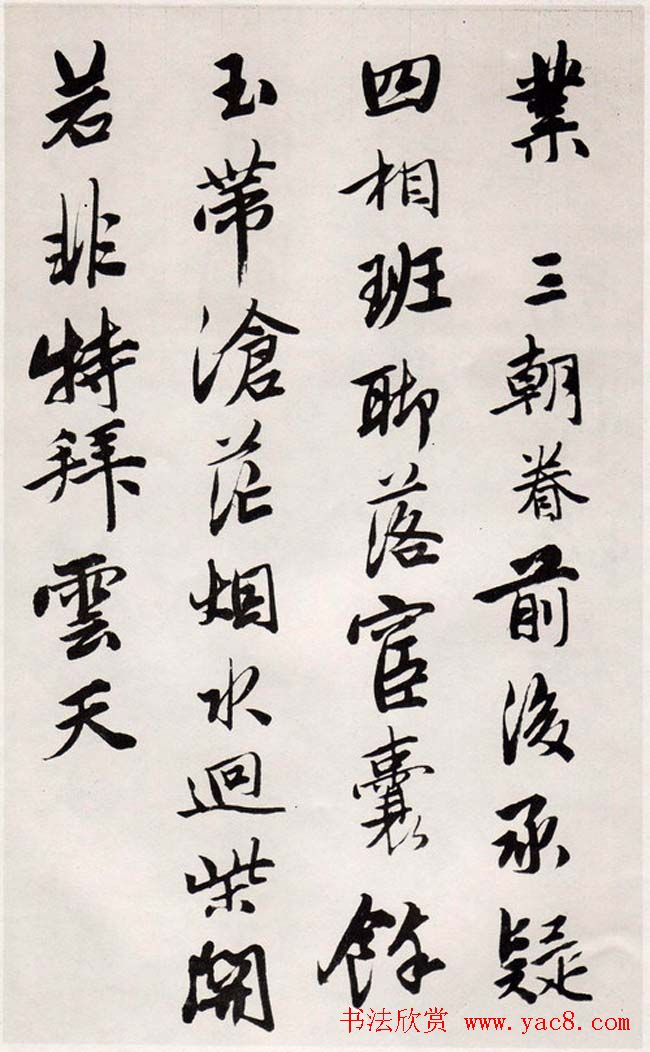 業 三朝眷前後承疑
四相班聊落宦囊餘
玉帶滄茫烟水迴柴關
若非特拜雲天
书法欣赏 www.yac8.com